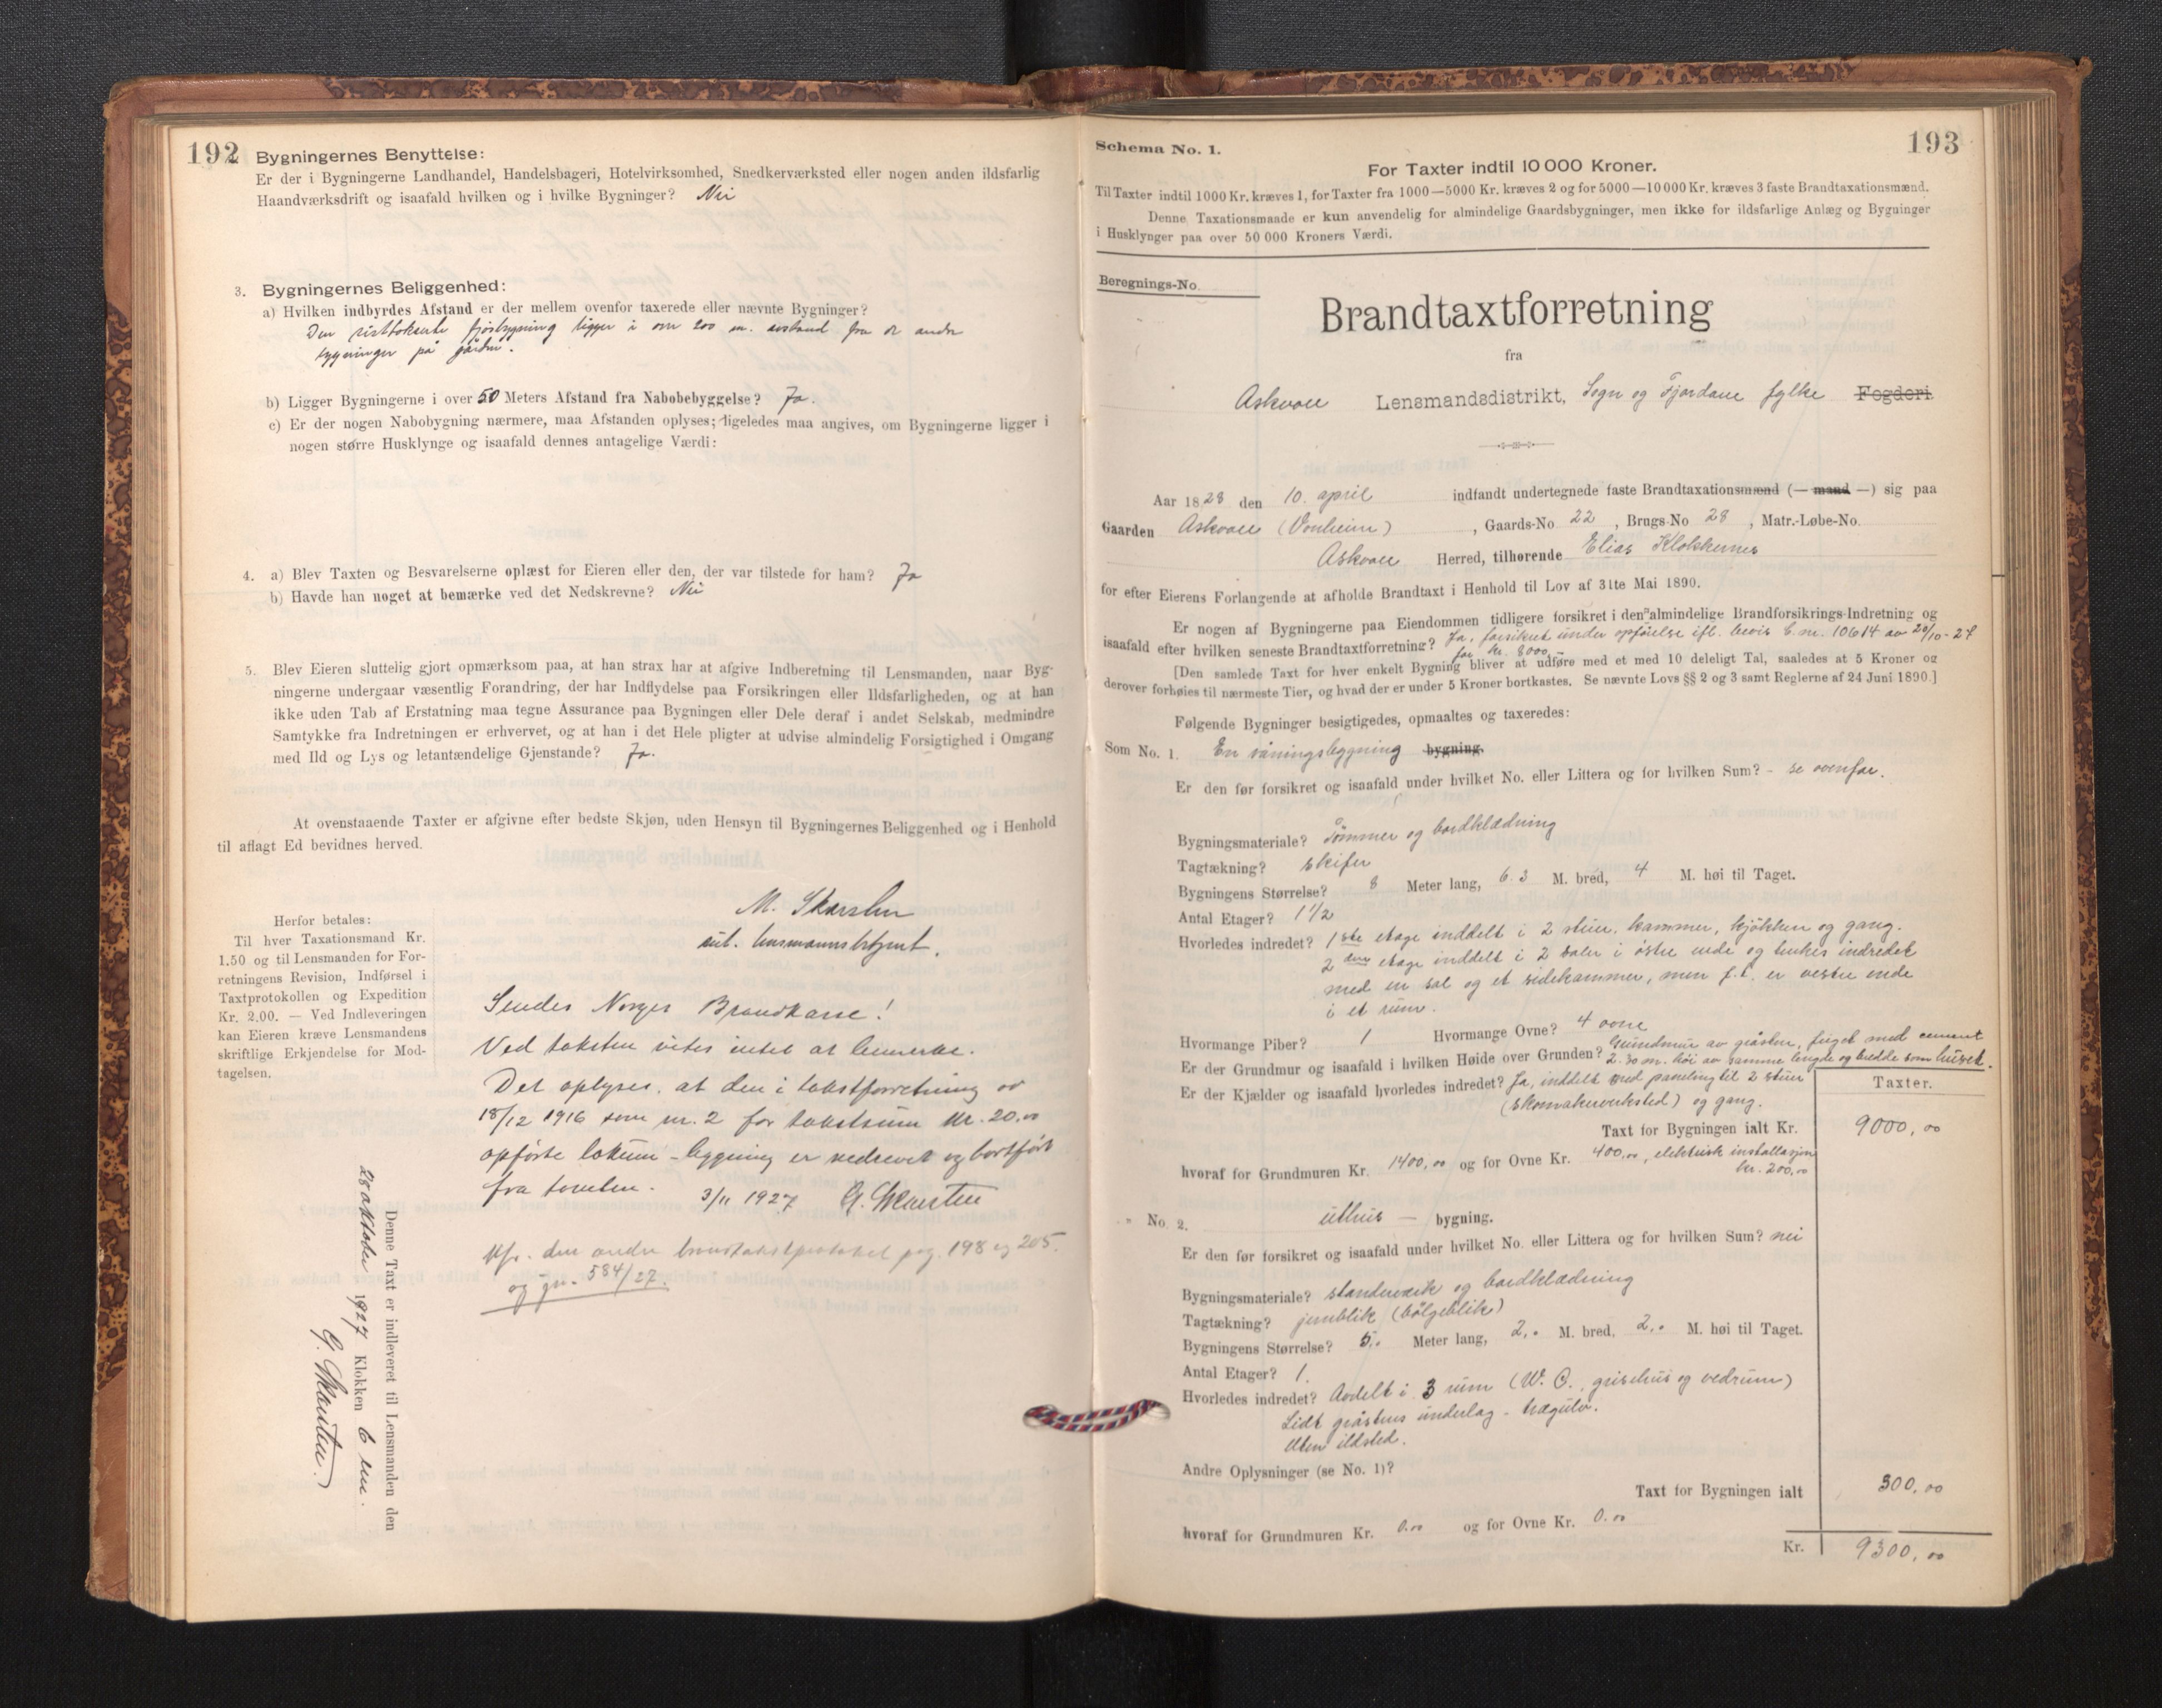 192
Bygningernes Benyttelse:
Er der i Bygningerne Landhandel, Handelsbageri, Hotelvirksomhed, Snedkerværksted eller nogen anden ildsfarlig
Haandværksdrift og isaafald hvilken og i hvilke Bygninger? Nei
3. Bygningernes Beliggenhed:
a) Hvilken indbyrdes Afstand er der mellem ovenfor taxerede eller nævnte Bygninger?
Den sisttakserte fjøsbygning ligger i om 200 m. avstand fra de andre
bygninger på gården.
b) Ligger Bygningerne i over 50 Meters Afstand fra Nabobebyggelse? Ja.
c) Er der nogen Nabobygning nærmere, maa Afstanden oplyses; ligeledes maa angives, om Bygningerne ligger i
nogen større Husklynge og isaafald dennes antagelige Værdi:
4. a) Blev Taxten og Besvarelserne oplæst for Eieren eller den, der var tilstede for ham? Ja
b) Havde han noget at bemærke ved det Nedskrevne? Nei
5. Blev Eieren sluttelig gjort opmærksom paa, at han strax har at afgive Indberetning til Lensmanden, naar Byg-
ningerne undergaar væsentlig Forandring, der har Indflydelse paa Forsikringen eller Ildsfarligheden, og at han
ikke uden Tab af Erstatning maa tegne Assurance paa Bygningen eller Dele deraf i andet Selskab, medmindre
Samtykke fra Indretningen er erhvervet, og at han i det Hele pligter at udvise almindelig Forsigtighed i Omgang
med Ild og Lys og letantændelige Gjenstande? Ja.
At ovenstaaende Taxter er afgivne efter bedste Skjøn, uden Hensyn til Bygningernes Beliggenhed og i Henhold
til aflagt Ed bevidnes herved.
M. Skarsten
lensmannsbetjent.
Herfor betales:
Til hver Taxationsmand Kr.
1.50 og til Lensmanden for For-
retningens Revision, Indførsel i
Taxtprotokollen og Expedition
Kr. 2.00. — Ved Indleveringen
kan Eieren kræve Lensmandens
skriftlige Erkjendelse for Mod-
tagelsen.
Sendes Norges Brandkasse!
Ved taksten vites intet at bemerke.
Det oplyses, at den i takstforretning av
18/12 1916 som nr. 2 for takstsum kr. 20.00
opførte lokum-bygning er nedrevet og bortført
fra tomten. 3/11 1927 G. Skarsten
Kfr. den andre brandtakstprotokol pag. 198 og 205.
og jn. 584/27.
Denne Taxt er indleveret til Lensmanden den
28 oktober 1927 Klokken 6 em.
G. Skarsten
193
Schema No. 1.
For Taxter indtil 10 000 Kroner.
Til Taxter indtil 1000 Kr. kræves 1, for Taxter fra 1000—5000 Kr. kræves 2 og for 5000—10 000 Kr. kræves 3 faste Brandtaxationsmænd.
Denne Taxationsmaade er kun anvendelig for almindelige Gaardsbygninger, men ikke for ildsfarlige Anlæg og Bygninger
i Husklynger paa over 50 000 Kroners Værdi.
Beregnings-No.
Brandtaxtforretning
fra
Askvoll Lensmandsdistrikt, Sogn og Fjordane fylke Fogderi
Aar 1828 den 10. april indfandt undertegnede faste Brandtaxationsmænd (— mand —) sig paa
Gaarden Askvoll (Vonheim), Gaards-No. 22, Brugs-No 28, Matr.-Løbe-No.
Askvoll Herred, tilhørende Elias Klokkernes
for efter Eierens Forlangende at afholde Brandtaxt i Henhold til Lov af 31te Mai 1890.
Er nogen af Bygningerne paa Eiendommen tidligere forsikret i den almindelige Brandforsikrings-Indretning og
isaafald efter hvilken seneste Brandtaxtforretning? Ja, forsikret under opførelse ifl. bevis L.nr. 10614 av 20/10-27
for kr. 8000
[Den samlede Taxt for hver enkelt Bygning bliver at udføre med et med 10 deleligt Tal, saaledes at 5 Kroner og
derover forhøies til nærmeste Tier, og hvad der er under 5 Kroner bortkastes. Se nævnte Lovs §§ 2 og 3 samt Reglerne af 24 Juni 1890.]
Følgende Bygninger besigtigedes, opmaaltes og taxeredes:
Som No. 1. En våningsbygning bygning.
Er den før forsikret og isaafald under hvilket No. eller Littera og for hvilken Sum? - se ovenfor.
Bygningsmateriale? Tømmer og bordklædning
Tagtækning? Skifer
Bygningens Størrelse? 8 Meter lang, 6.3 M. bred, 4 M. høi til Taget.
Antal Etager? 1 1/2
Hvorledes indredet? 1ste etage inddelt i 2 stuer, kammer, kjøkken og gang.
2den etage inddelt i 2 saler i østre ende og tenkes indredet
med en sal og et sidekammer, men f.t. er vestre ende
i et rum.
Hvormange Piber? 1 Hvormange Ovne? 4 ovne
Er der Grundmur og isaafald i hvilken Høide over Grunden? Grundmur av gråsten, fuget med cement
2.30 m. høi av samme lengde og bredde som huset.
Er der Kjælder og isaafald hvorledes indredet? Ja, inddelt med paneling til 2 stuer
(skomakerverksted) og gang.
Taxter.
Taxt for Bygningen ialt Kr. 9000,00
hvoraf for Grundmuren Kr. 1400,00 og for Ovne Kr. 400,00, elektrisk installasjon
kr. 200,00
" No 2. uthus — bygning.
Er den før forsikret og isaafald under hvilket No. eller Littera og for hvilken Sum? nei
Bygningsmateriale? standerverk og bordklædning
Tagtækning? jernblik (bølgeblik)
Bygningens Størrelse? 5,. Meter lang, 2,. M. bred, 2,. M. høi til Taget.
Antal Etager? 1.
Hvorledes indredet? Avdelt i 3 rum (W.C., grisehus og vedrum)
Lidt gråstens underlag - trægulv.
Uten ildsted.
Andre Oplysninger (se No. 1)?
Taxt for Bygningen ialt 300,00
hvoraf for Grundmuren Kr. 0.00 og for Ovne Kr. 0.00
Kr. 9300,00